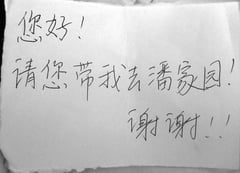 您好！
请您带我去潘家园！
谢谢！！